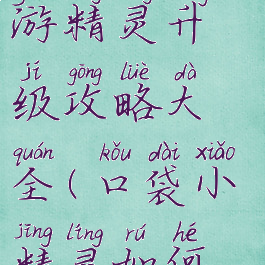 游精灵升
jí gōng lüè dà
级攻略大
quán kǒu dài xiǎo
全(口袋小
jīng líng rú hé
精灵如何